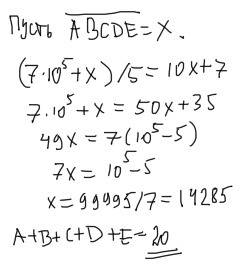 Пусть ABCDE = X.
(7·10⁵+x)/5 = 10x+7
7·10⁵+x = 50x+35
49x = 7(10⁵-5)
7x = 10⁵-5
x = 99995/7 = 14285
A+B+C+D+E = 20